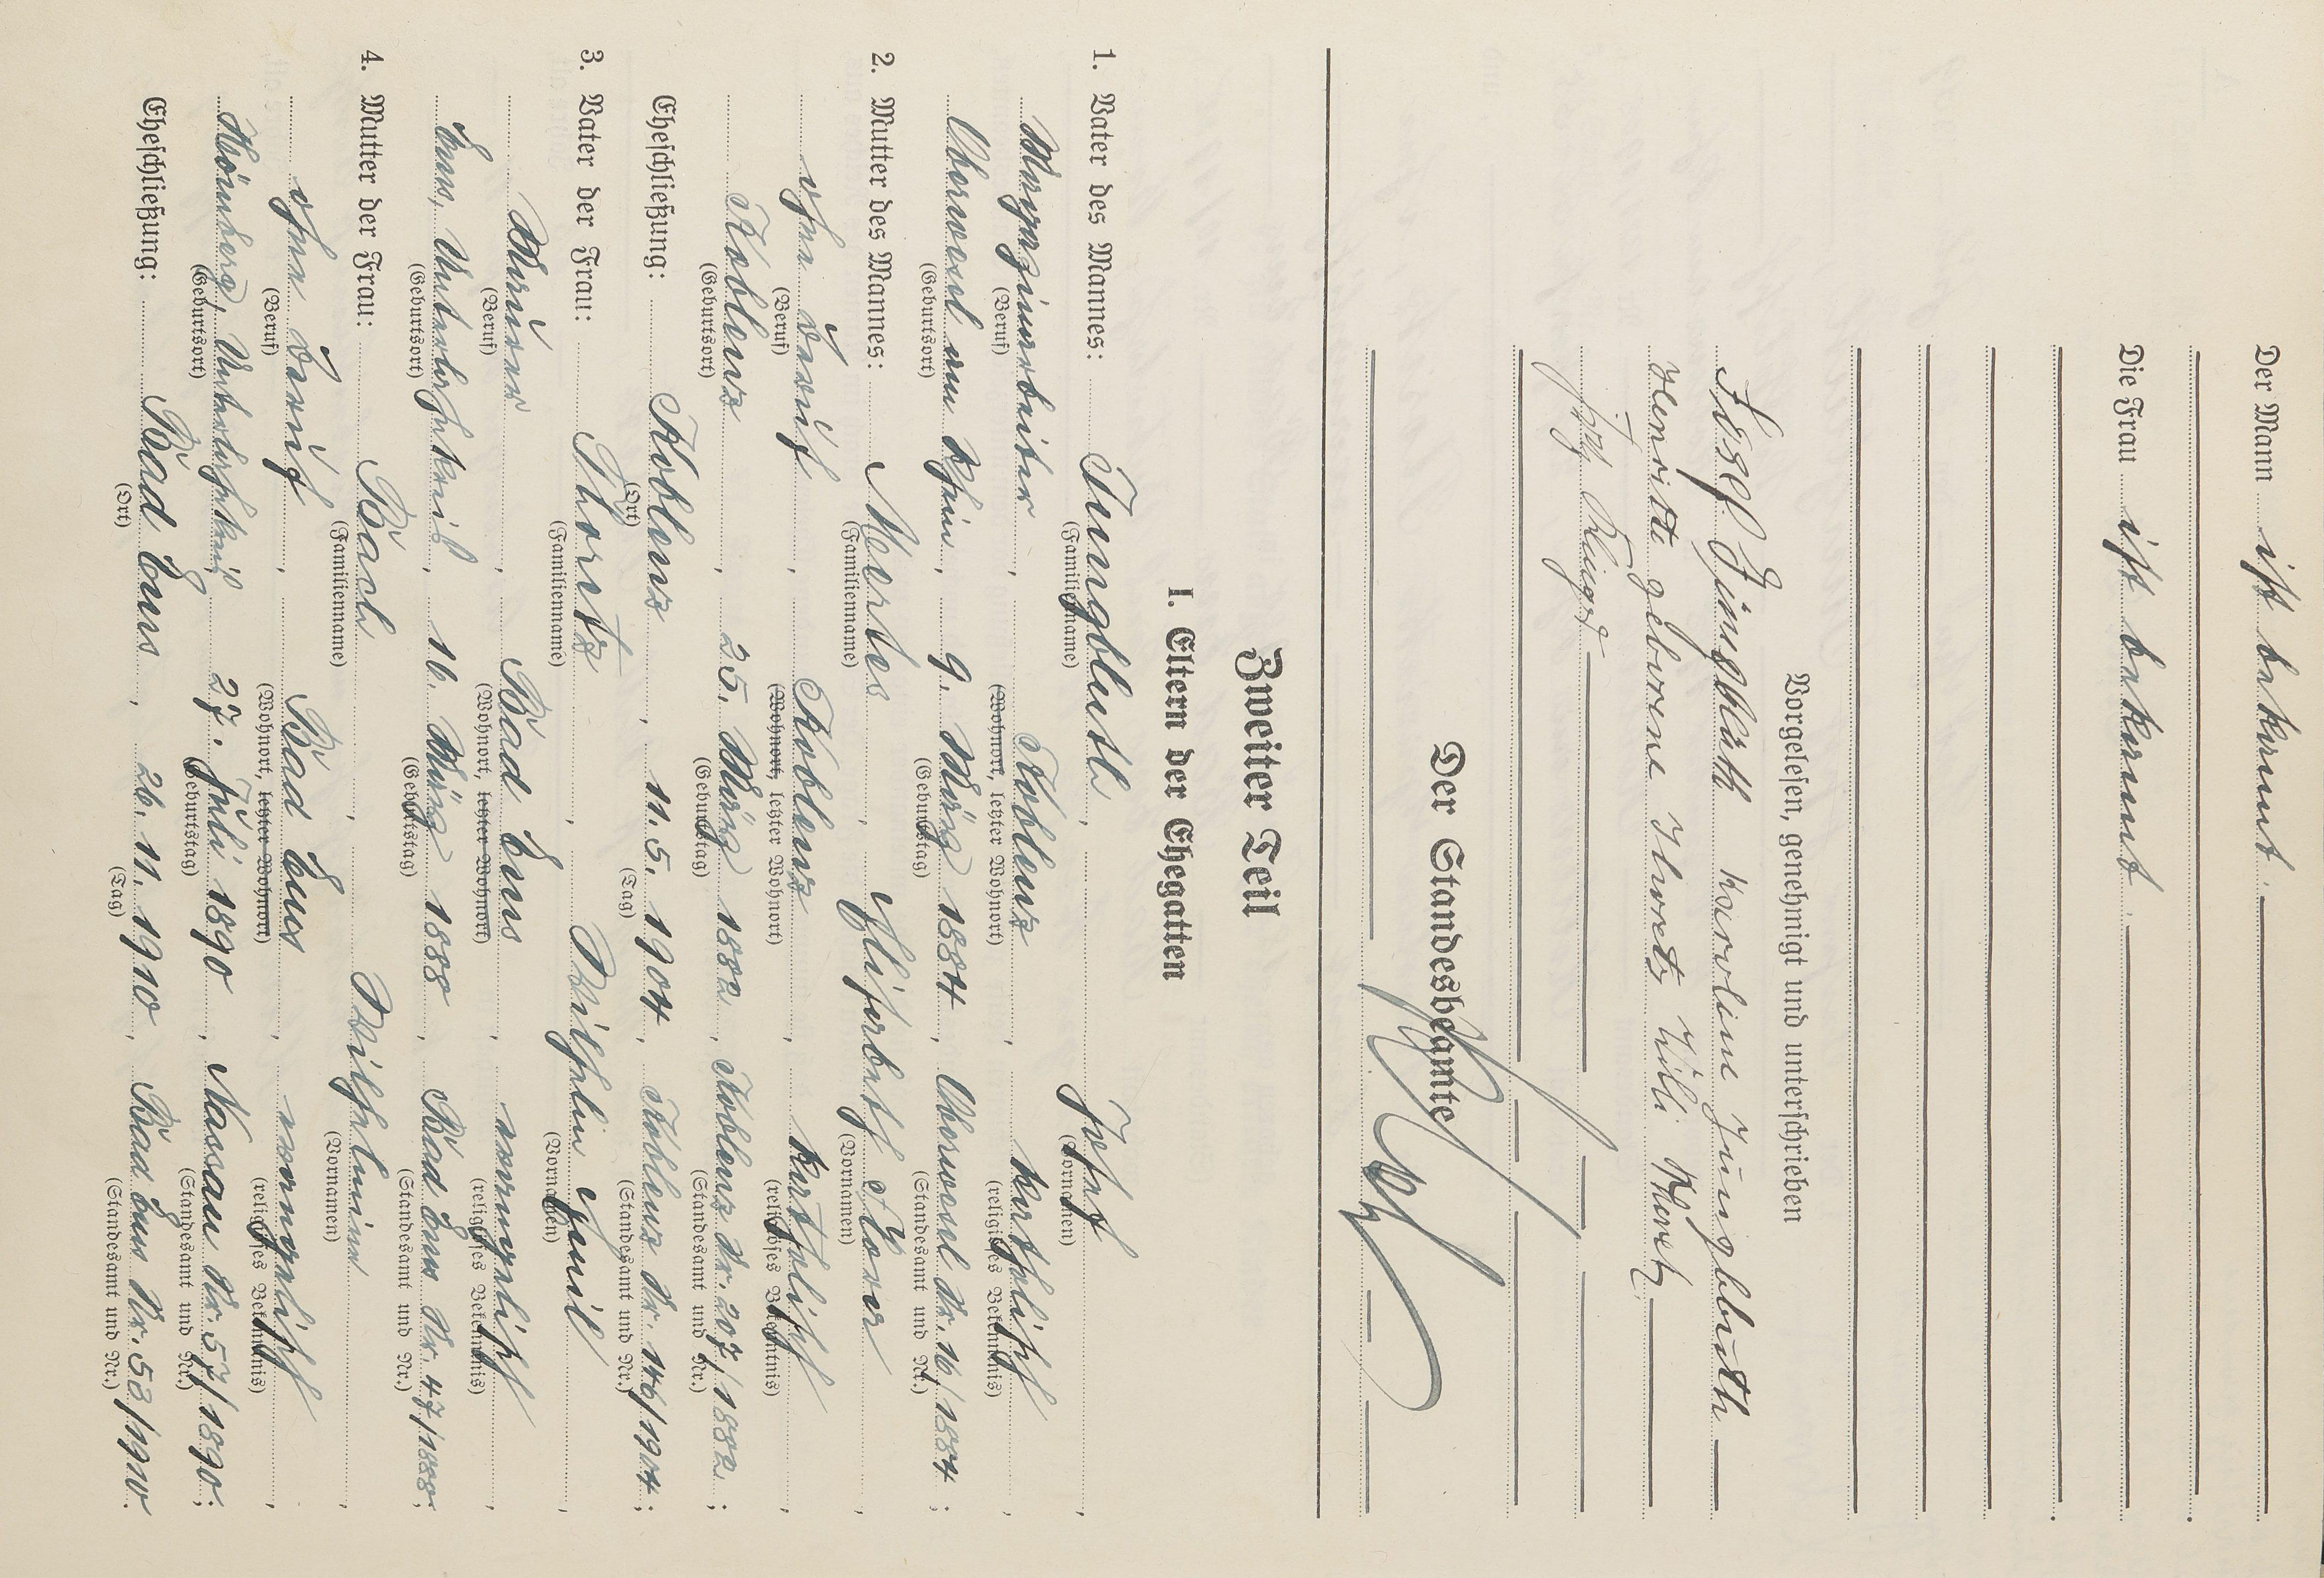 Der Mann ist bekannt.
Die Frau ist bekannt.
Vorgelesen, genehmigt und unterschrieben
Josef Jüngbluth Karoline Jüngbluth
Henriette geborene Thoretz Willi Thoretz
Der Standesbeamte
Zweiter Teil
I. Eltern der Ehegatten
1. Vater des Mannes: Jungbluth, Josef,
(Familienname) (Vornamen)
Magazinarbeiter, Koblenz, katholisch,
(Beruf) (Wohnort, letzter Wohnort) (religiöses Bekenntnis)
Oberwesel am Rhein, 9. März 1884, Oberwesel Nr. 16/1884;
(Geburtsort) (Geburtstag) (Standesamt und Nr.)
2. Mutter des Mannes: Mertes, Elisabeth
(Familienname) (Vornamen)
ohne Beruf, Koblenz, katholisch,
(Beruf) (Wohnort, letzter Wohnort) (religiöses Bekenntnis)
Koblenz, 25. März 1882, Koblenz Nr. 207/1882;
(Geburtsort) (Geburtstag) (Standesamt und Nr.)
Eheschließung: Koblenz, 11.5.1904, Koblenz Nr. 146/1904;
(Ort) (Tag) (Standesamt und Nr.)
3. Vater der Frau: Thoretz, Wilhelm Emil,
(Familienname) (Vornamen)
Maurer, Bad Ems, evangelisch,
(Beruf) (Wohnort, letzter Wohnort) (religiöses Bekenntnis)
Ems, Unterlahnkreis, 16. März 1888, Bad Ems Nr. 47/1888;
(Geburtsort) (Geburtstag) (Standesamt und Nr.)
4. Mutter der Frau: Bach, Wilhelmine,
(Familienname) (Vornamen)
ohne Beruf, Bad Ems, evangelisch,
(Beruf) (Wohnort, letzter Wohnort) (religiöses Bekenntnis)
Hömberg, Unterlahnkreis, 27. Juli 1890, Nassau Nr. 57/1890;
(Geburtsort) (Geburtstag) (Standesamt und Nr.)
Eheschließung: Bad Ems, 26.11.1910, Bad Ems Nr. 53/1910.
(Ort) (Tag) (Standesamt und Nr.)